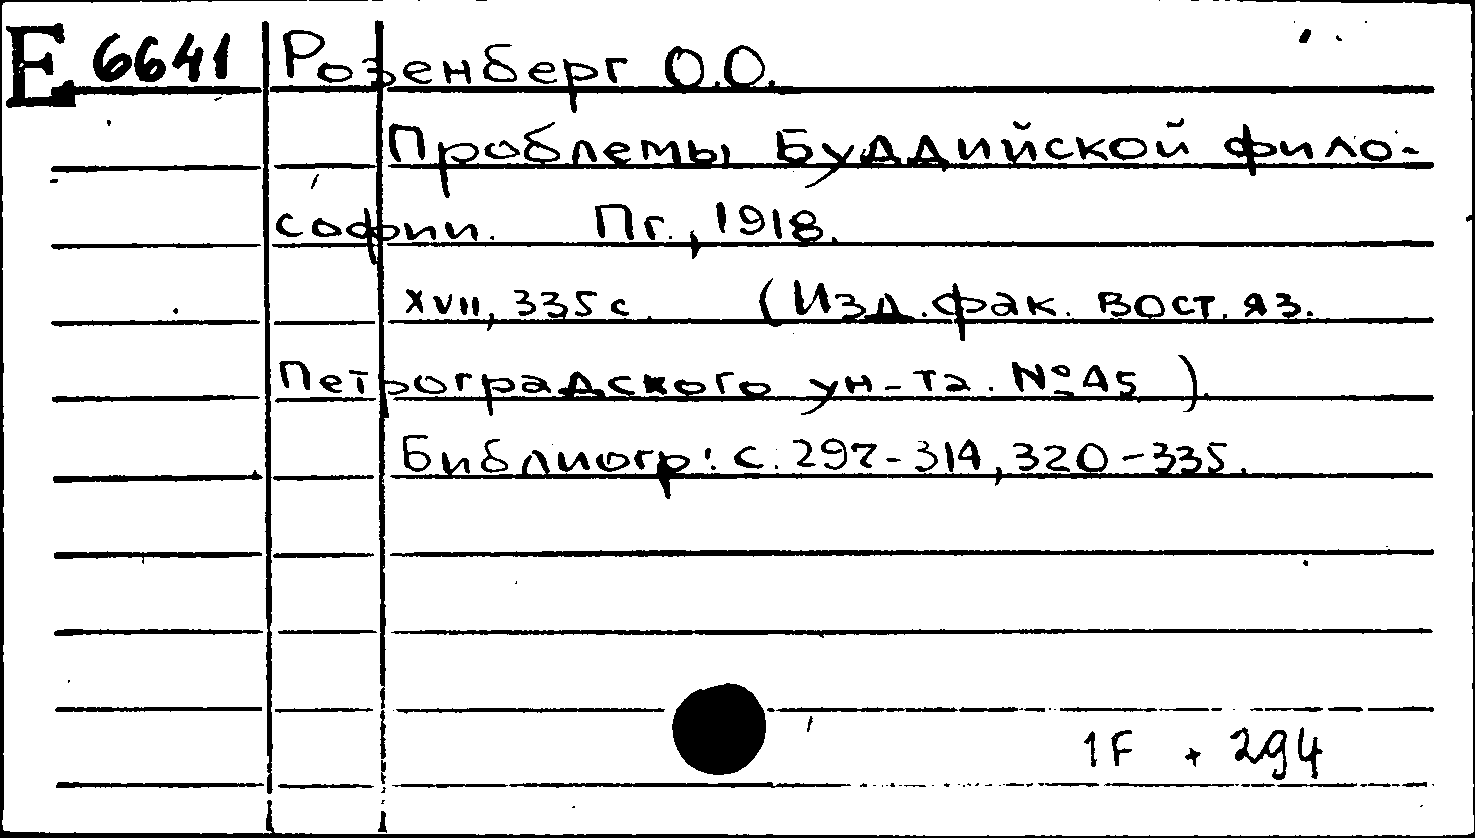 E 6641 Розенберг О.О.
Проблемы Буддийской фило-
софии. Пг., 1918.
XVII, 335 с. (Изд. фак. вост. яз.
Петроградского ун-та. № 45)
Библиогр: с. 297-314, 320-335.
1F + 294